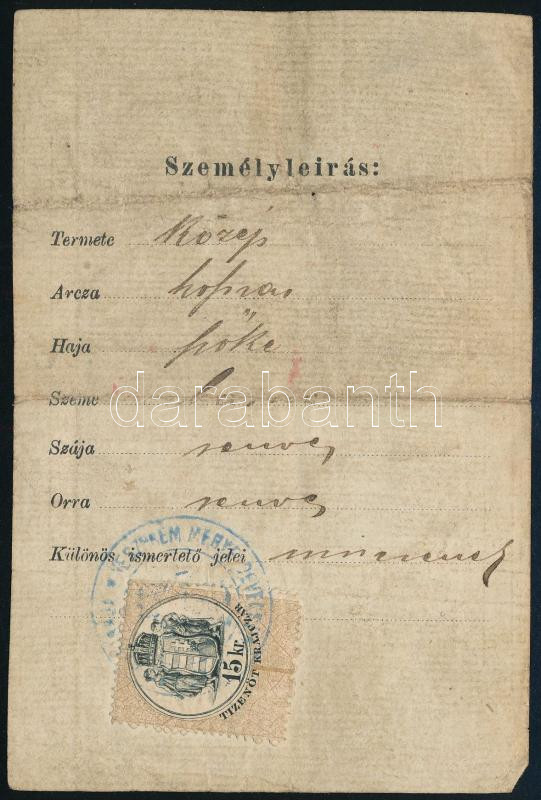 Személyleirás:
Termete közép
Arcza hosszas
Haja szőke
Szeme
darabanth
Szája rendes
Orra rendes
Különös ismertető jelei nincsenek
VESZPRÉM MEGYE DEVECS
15 kr.
TIZENÖT KRAJCZÁR